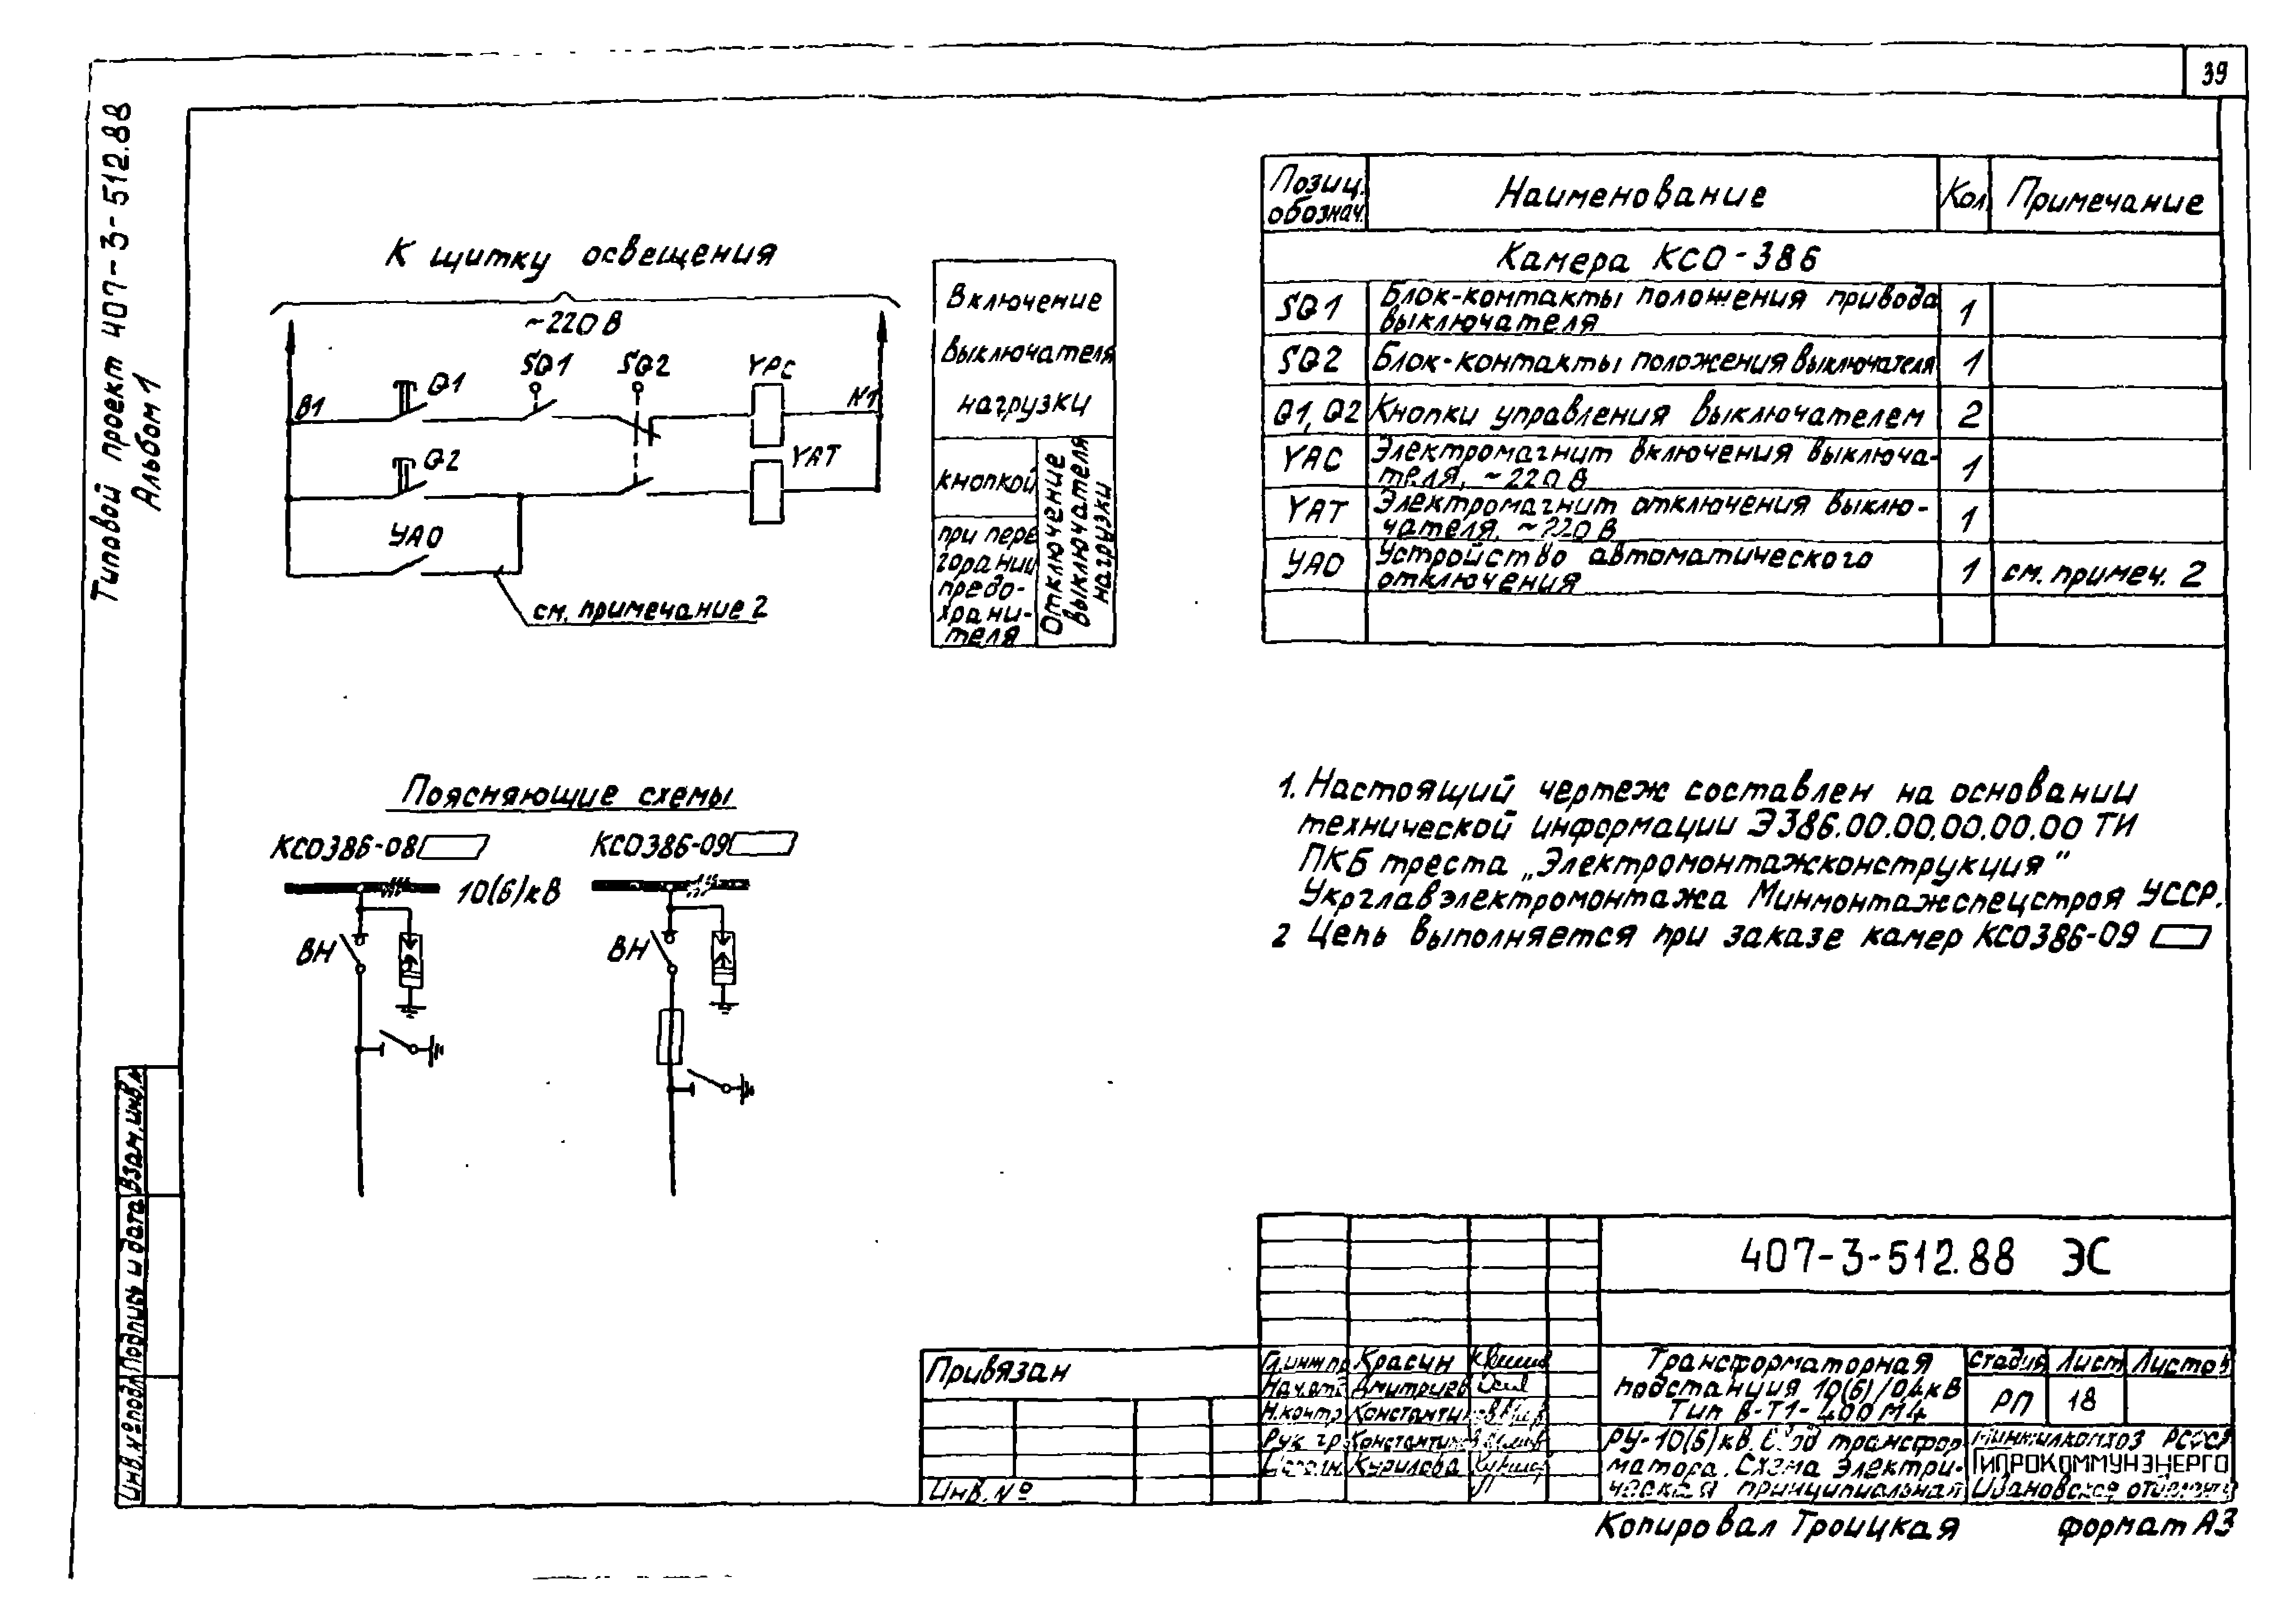 39
Типовой проект 407-3-512.88
Альбом 1
К щитку освещения
~220 В
В1
Q1
SQ1
SQ2
YPC
N1
Q2
YAT
УАО
см. примечание 2
Включение
выключателя
нагрузки
кнопкой
при пере
горании
предо-
храни-
теля
Отключение
выключателя
нагрузки
Позиц. обознач.
Наименование
Кол.
Примечание
Камера КСО-386
SQ1
Блок-контакты положения привода
выключателя
1
SQ2
Блок-контакты положения выключателя
1
Q1, Q2
Кнопки управления выключателем
2
YAC
Электромагнит включения выключа-
теля, ~220 В
1
YAT
Электромагнит отключения выклю-
чателя, ~220 В
1
УАО
Устройство автоматического
отключения
1
см. примеч. 2
Поясняющие схемы
КСО386-08
КСО386-09
10(6)кВ
ВН
ВН
1. Настоящий чертеж составлен на основании
технической информации Э386.00.00.00.00.00 ТИ
ПКБ треста „Электромонтажконструкция"
Укрглавэлектромонтажа Минмонтажспецстроя УССР.
2 Цепь выполняется при заказе камер КСО386-09
Взам.инв.№
Подпись и дата
Инв.№ подл.
407-3-512.88 ЭС
Привязан
Инв. №
Гл.инж.пр
Красин
Нач.отд
Дмитриев
Н.контр
Константинов
Рук. гр
Константинов
Исполн
Курилова
Трансформаторная
подстанция 10(6)/0,4кВ
Тип В-Т1-400 М4
Стадия
Лист
Листов
РП
18
РУ-10(6)кВ. Ввод трансфор
матора. Схема электри-
ческая принципиальная
Минжилкомхоз РСФСР
ГИПРОКОММУНЭНЕРГО
Ивановское отделение
Копировал Троицкая
формат А3